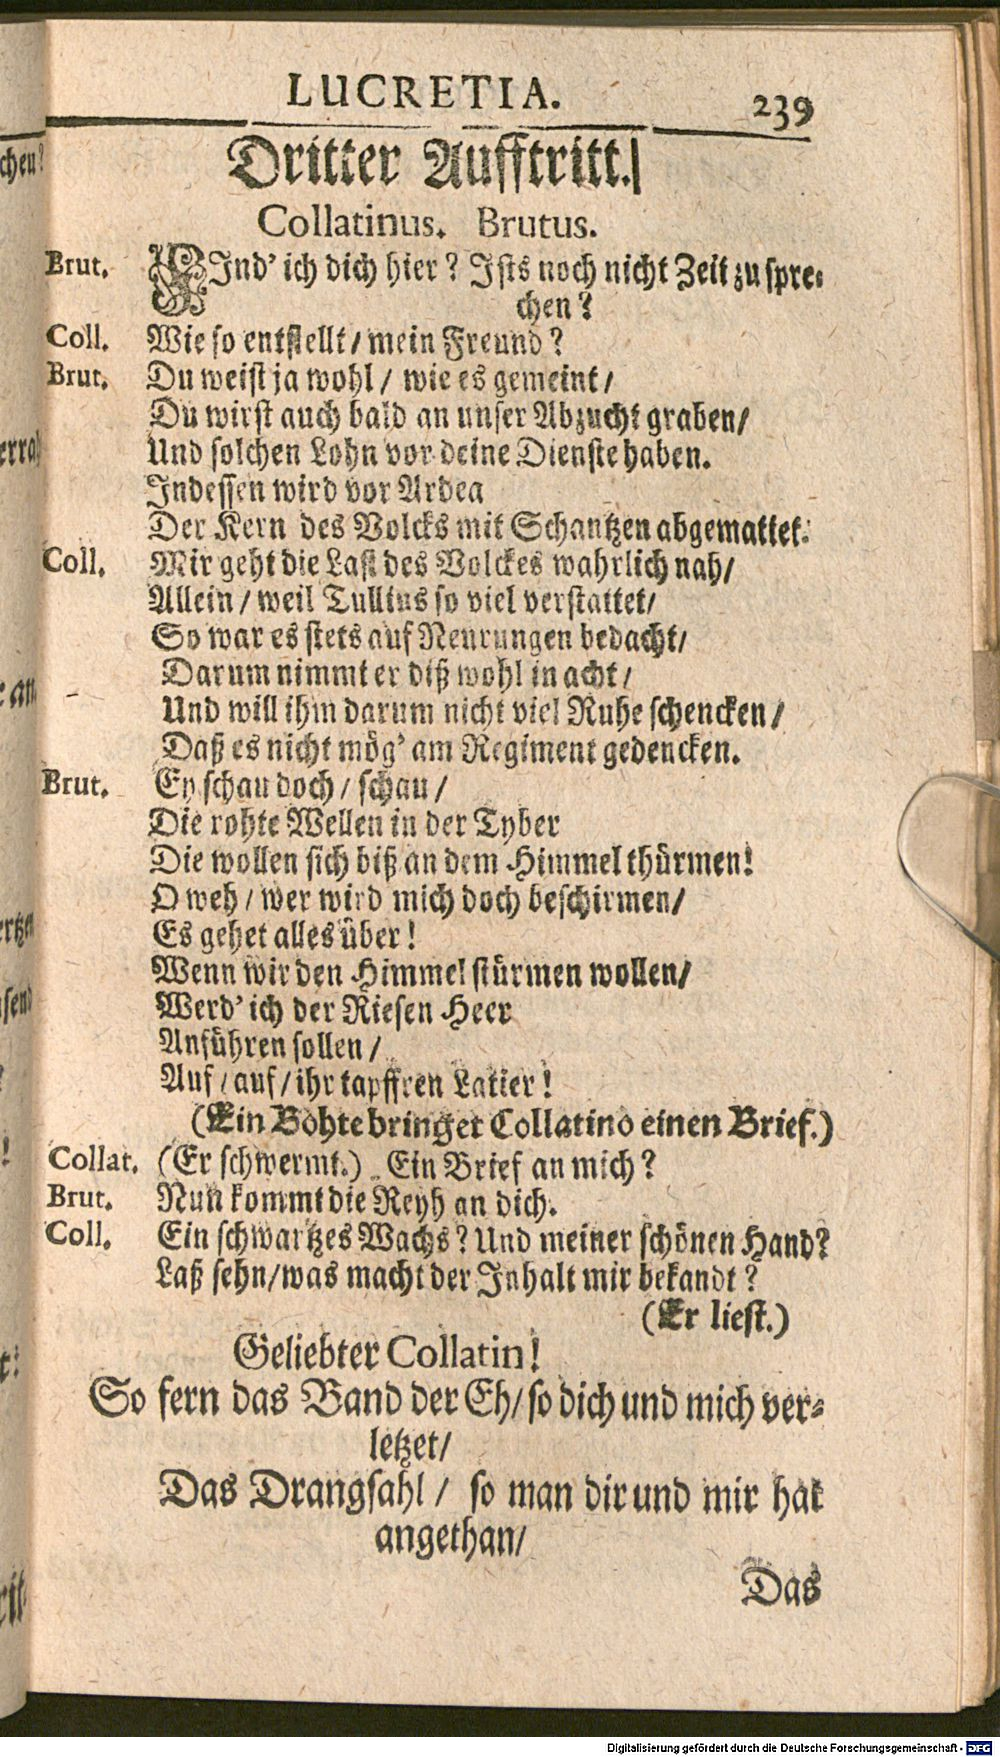 LUCRETIA. 239
Dritter Aufftritt.
Collatinus. Brutus.
Brut. FInd' ich dich hier? Ists noch nicht Zeit zu spre-
chen?
Coll. Wie so entstellt / mein Freund?
Brut. Du weist ja wohl / wie es gemeint /
Du wirst auch bald an unser Abzucht graben /
Und solchen Lohn vor deine Dienste haben.
Indessen wird vor Ardea
Der Kern des Volcks mit Schantzen abgemattet.
Coll. Mir geht die Last des Volckes wahrlich nah /
Allein / weil Tullius so viel verstattet /
So war es stets auf Neurungen bedacht /
Darum nimmt er diß wohl in acht /
Und will ihm darum nicht viel Ruhe schencken /
Daß es nicht mög' am Regiment gedencken.
Brut. Ey schau doch / schau /
Die rohte Wellen in der Tyber
Die wollen sich biß an dem Himmel thürmen!
O weh / wer wird mich doch beschirmen /
Es gehet alles über!
Wenn wir den Himmel stürmen wollen /
Werd' ich der Riesen Heer
Anführen sollen /
Auf / auf / ihr tapffren Latier!
(Ein Bohte bringet Collatino einen Brief.)
Collat. (Er schwermt.) Ein Brief an mich?
Brut. Nun kommt die Reyh an dich.
Coll. Ein schwartzes Wachs? Und meiner schönen Hand?
Laß sehn / was macht der Inhalt mir bekandt?
(Er liest.)
Geliebter Collatin!
So fern das Band der Eh / so dich und mich ver-
letzet /
Das Drangsahl / so man dir und mir hat
angethan /
Das
Digitalisierung gefördert durch die Deutsche Forschungsgemeinschaft - DFG